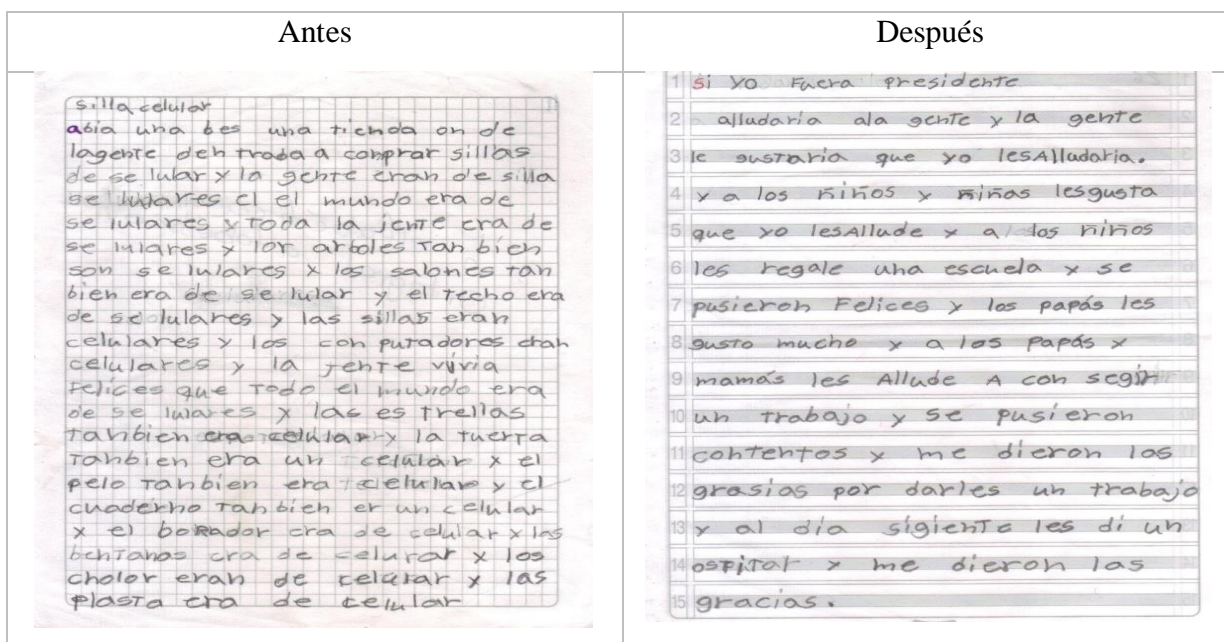 Antes
silla celular
abia una bes una tienda on de
lagente den traba a comprar sillas
de se lular y la gente eran de silla
se lulares el el mundo era de
se lulares y toda la jente era de
se lulares y lor arboles tan bien
son se lulares y los salones tan
bien era de se lular y el techo era
de se lulares y las sillas eran
celulares y los con putadores eran
celulares y la jente vivia
felices que todo el mundo era
de se lulares y las es trellas
tanbien era celular y la tuerta
tanbien era un celular y el
pelo tanbien era celular y el
cuaderno tan bien er un celular
y el borador era de celular y las
bentanas era de celurar y los
cholor eran de celurar y las
plasta era de celular
Después
1 si yo Fuera presidente
2 alludaria ala gente y la gente
3 le gustaria que yo lesAlludaria.
4 y a los niños y niñas lesgusta
5 que yo lesAllude y a los niños
6 les regale una escuela y se
7 pusieron Felices y los papás les
8 gusto mucho y a los papás y
9 mamás les Allude A con segir
10 un trabajo y se pusieron
11 contentos y me dieron las
12 grasias por darles un trabajo
13 y al día sigiente les di un
14 ospital y me dieron las
15 gracias.